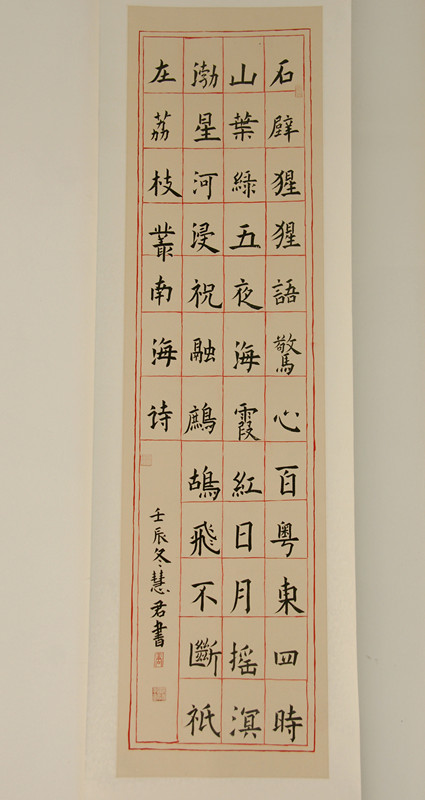 石壁猩猩語驚心百粵東四時
山葉綠五夜海霞紅日月摇溟
渤星河浸祝融鷓鴣飛不斷祇
在荔枝叢南海诗
壬辰冬慧君書